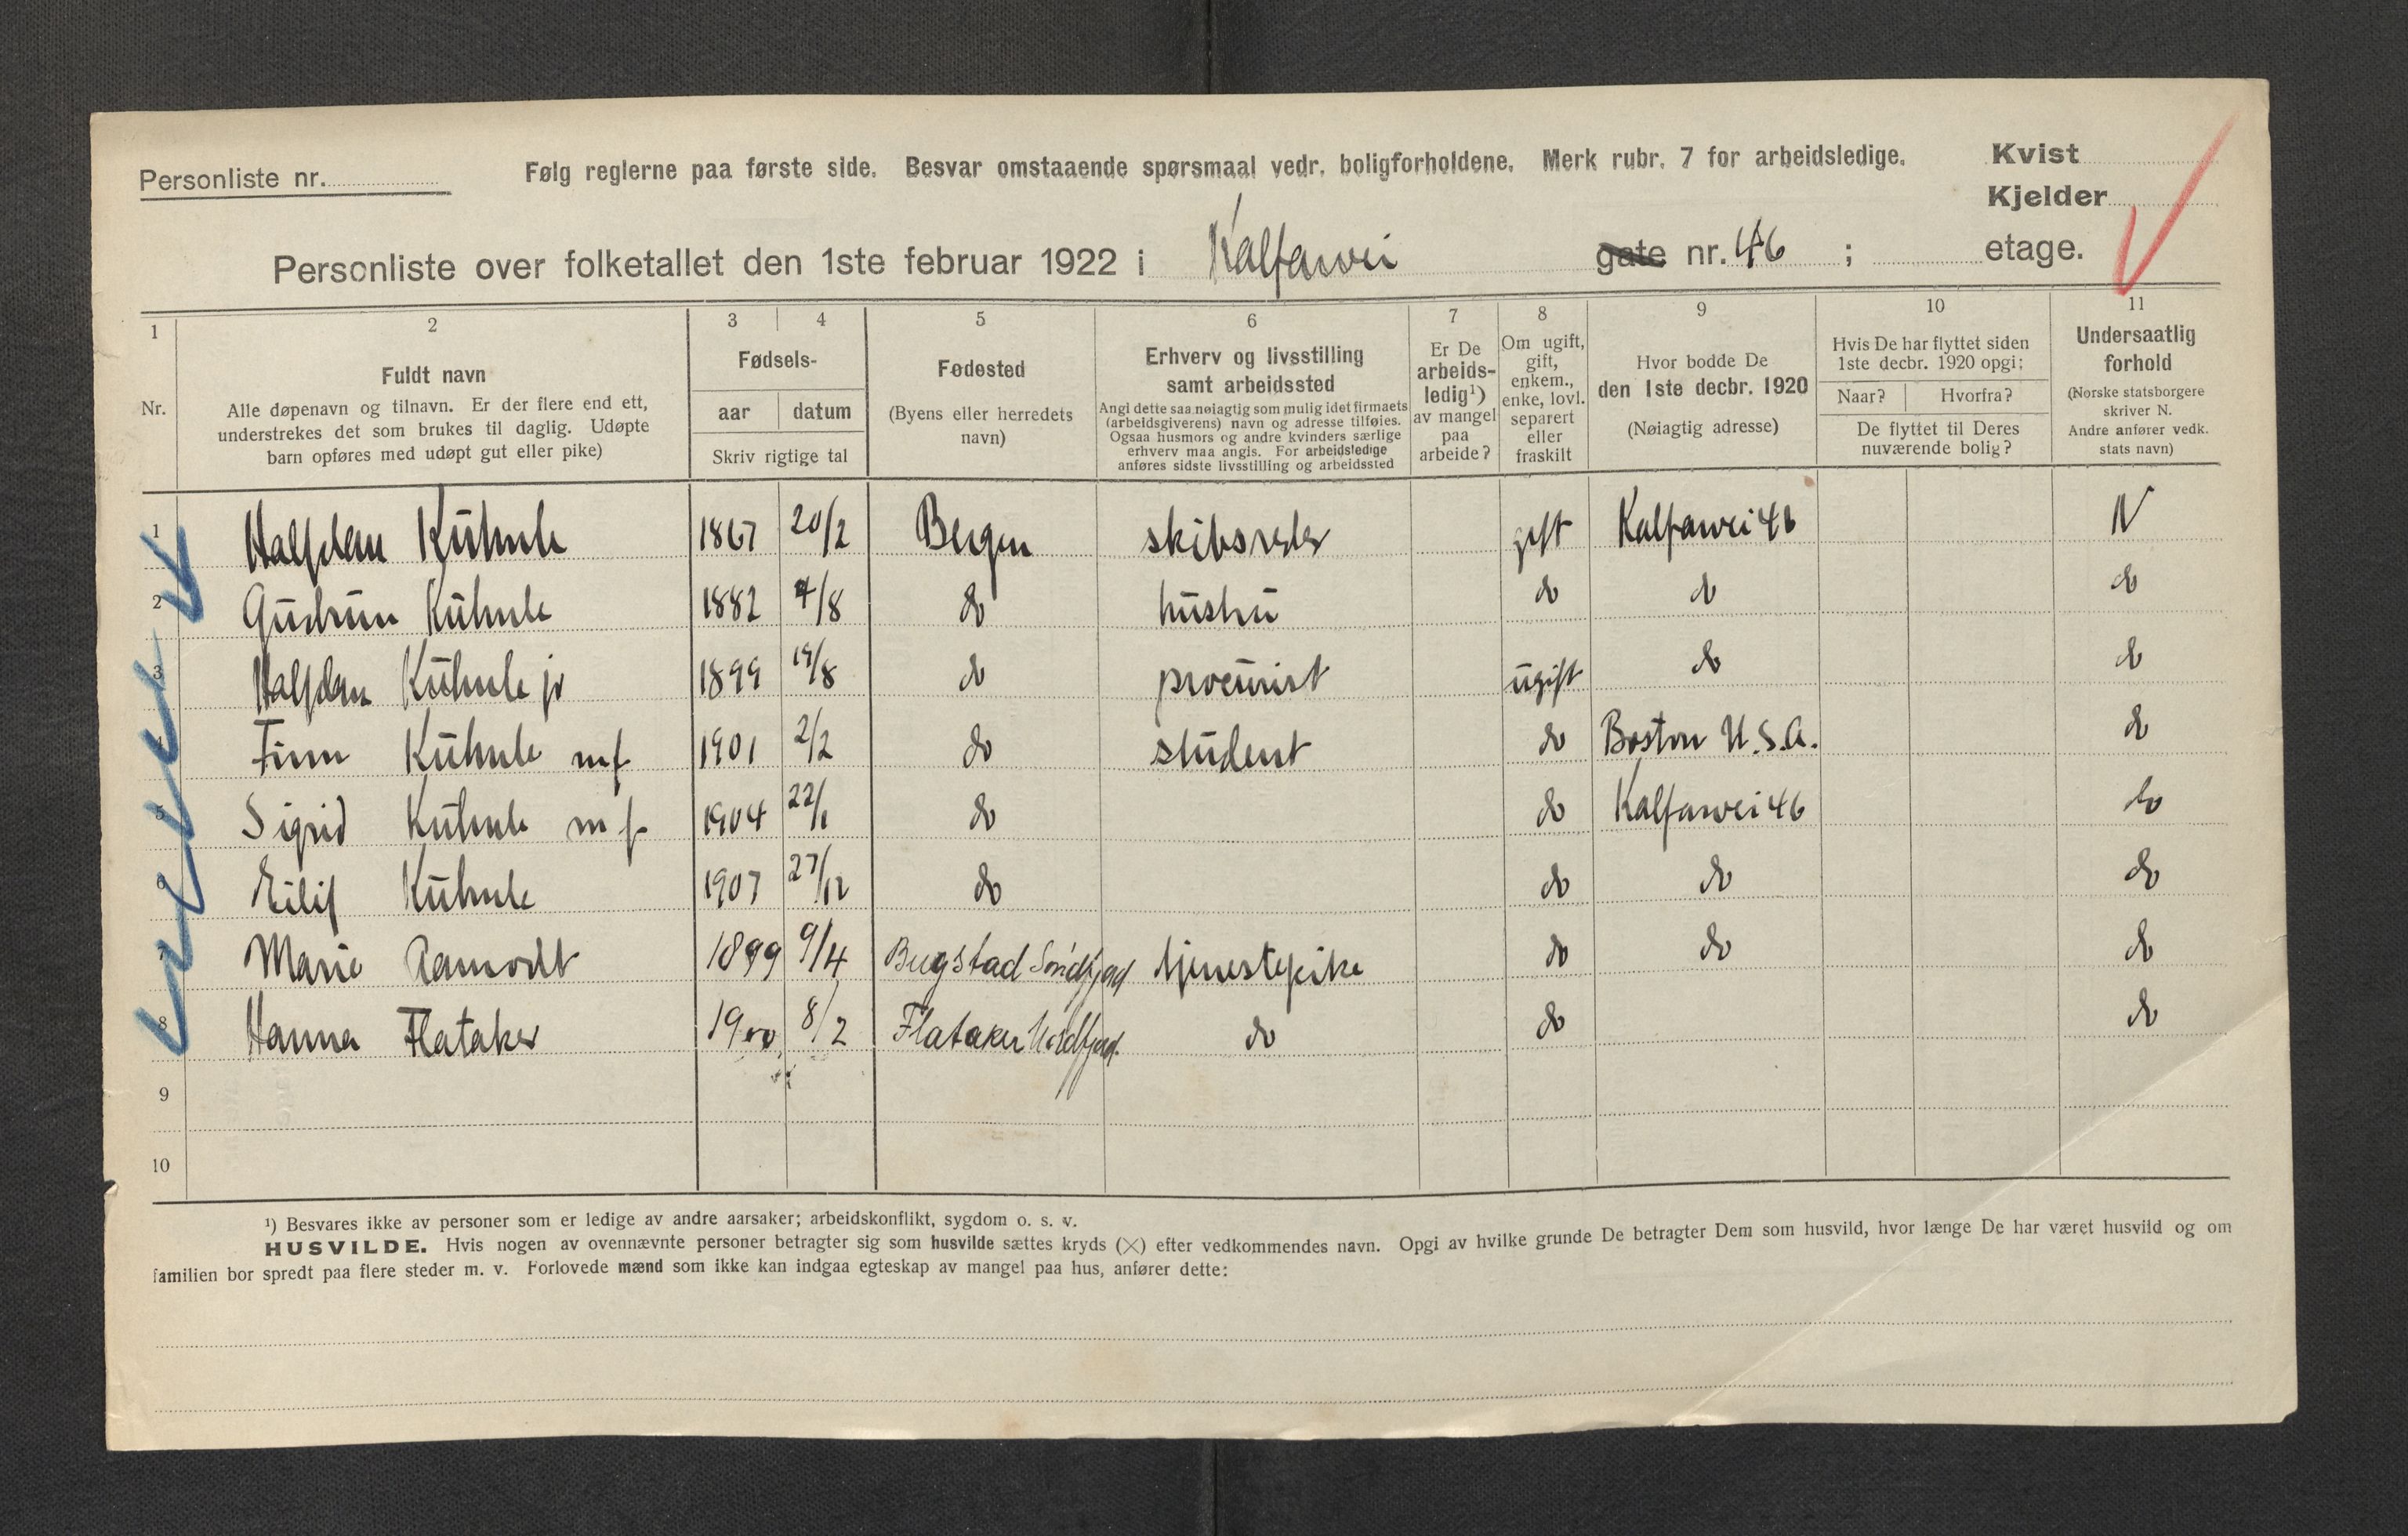 Personliste nr.
Følg reglerne paa første side. Besvar omstaaende spørsmaal vedr. boligforholdene. Merk rubr. 7 for arbeidsledige.
Kvist
Kjelder
Personliste over folketallet den 1ste februar 1922 i Kalfarvei gate nr. 46 ; etage.
1 2 3 4 5 6 7 8 9 10 11
Nr.
Fuldt navn
Alle døpenavn og tilnavn. Er der flere end ett,
understrekes det som brukes til daglig. Udøpte
barn opføres med udøpt gut eller pike)
Fødsels-
aar datum
Skriv rigtige tal
Fødested
(Byens eller herredets
navn)
Erhverv og livsstilling
samt arbeidssted
Angi dette saa nøiagtig som mulig idet firmaets
(arbeidsgiverens) navn og adresse tilføies.
Ogsaa husmors og andre kvinders særlige
erhverv maa angis. For arbeidsledige
anføres sidste livsstilling og arbeidssted
Er De
arbeids-
ledig¹)
av mangel
paa
arbeide?
Om ugift,
gift,
enkem.,
enke, lovl.
separert
eller
fraskilt
Hvor bodde De
den 1ste decbr. 1920
(Nøiagtig adresse)
Hvis De har flyttet siden
1ste decbr. 1920 opgi:
Naar? Hvorfra?
De flyttet til Deres
nuværende bolig?
Undersaatlig
forhold
(Norske statsborgere
skriver N.
Andre anfører vedk.
stats navn)
1 Halfdan Kuhnle 1867 20/2 Bergen skibsreder gift Kalfarvei 46 N
2 Gudrun Kuhnle 1882 4/8 do hustru do do do
3 Halfdan Kuhnle jr 1899 19/8 do procurist ugift do do
4 Finn Kuhnle mf 1901 2/2 do student do Boston U.S.A. do
5 Sigrid Kuhnle mf 1904 22/1 do do Kalfarvei 46 do
6 Eilif Kuhnle 1907 27/12 do do do do
7 Marie Aamodt 1899 9/4 Bygstad Söndfjord tjenestepike do do do
8 Hanna Flataker 1900 8/2 Flataker Nordfjord. do do do
9
10
¹) Besvares ikke av personer som er ledige av andre aarsaker; arbeidskonflikt, sygdom o. s. v.
HUSVILDE. Hvis nogen av ovennævnte personer betragter sig som husvilde sættes kryds (×) efter vedkommendes navn. Opgi av hvilke grunde De betragter Dem som husvild, hvor længe De har været husvild og om
familien bor spredt paa flere steder m. v. Forlovede mænd som ikke kan indgaa egteskap av mangel paa hus, anfører dette: